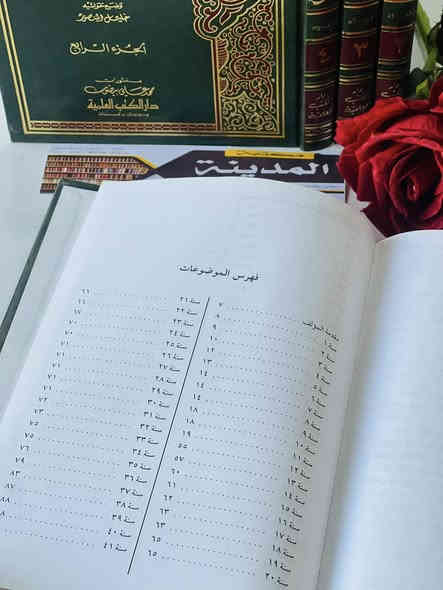 وضع حواشيه
خليل المنصور
الجزء الرابع
منشورات
محمد علي بيضون
دار الكتب العلمية
٤
٣
١
مكتبة
المدينة
فهرس الموضوعات
مقدمة المؤلف ٧
سنة ١ ٨
سنة ٢ ٩
سنة ٣ ١٠
سنة ٤ ١٢
سنة ٥ ١٣
سنة ٦ ١٤
سنة ٧ ١٤
سنة ٨ ١٨
سنة ٩ ١٨
سنة ١٠ ١٩
سنة ١١ ٥٥
سنة ١٢ ٥٧
سنة ١٣ ٦٠
سنة ١٤ ٦١
سنة ١٥ ٦٢
سنة ١٦ ٦٣
سنة ١٧
سنة ١٨ ٦٣
سنة ١٩
سنة ٢٠ ٦٥
سنة ٢١ ٦٦
سنة ٢٢ ٦٦
سنة ٢٣ ٦٧
سنة ٢٤ ٧٠
سنة ٢٥ ٧٠
سنة ٢٦ ٧١
سنة ٢٧ ٧١
سنة ٢٨ ٧١
سنة ٢٩ ٧١
سنة ٣٠ ٧٢
سنة ٣١ ٧٣
سنة ٣٢ ٧٥
سنة ٣٣ ٧٥
سنة ٣٤ ٧٦
سنة ٣٥ ٧٩
سنة ٣٦ ٨٣
سنة ٣٧ ٨٧
سنة ٣٨ ٨٨
سنة ٣٩
سنة ٤٠
سنة ٤١